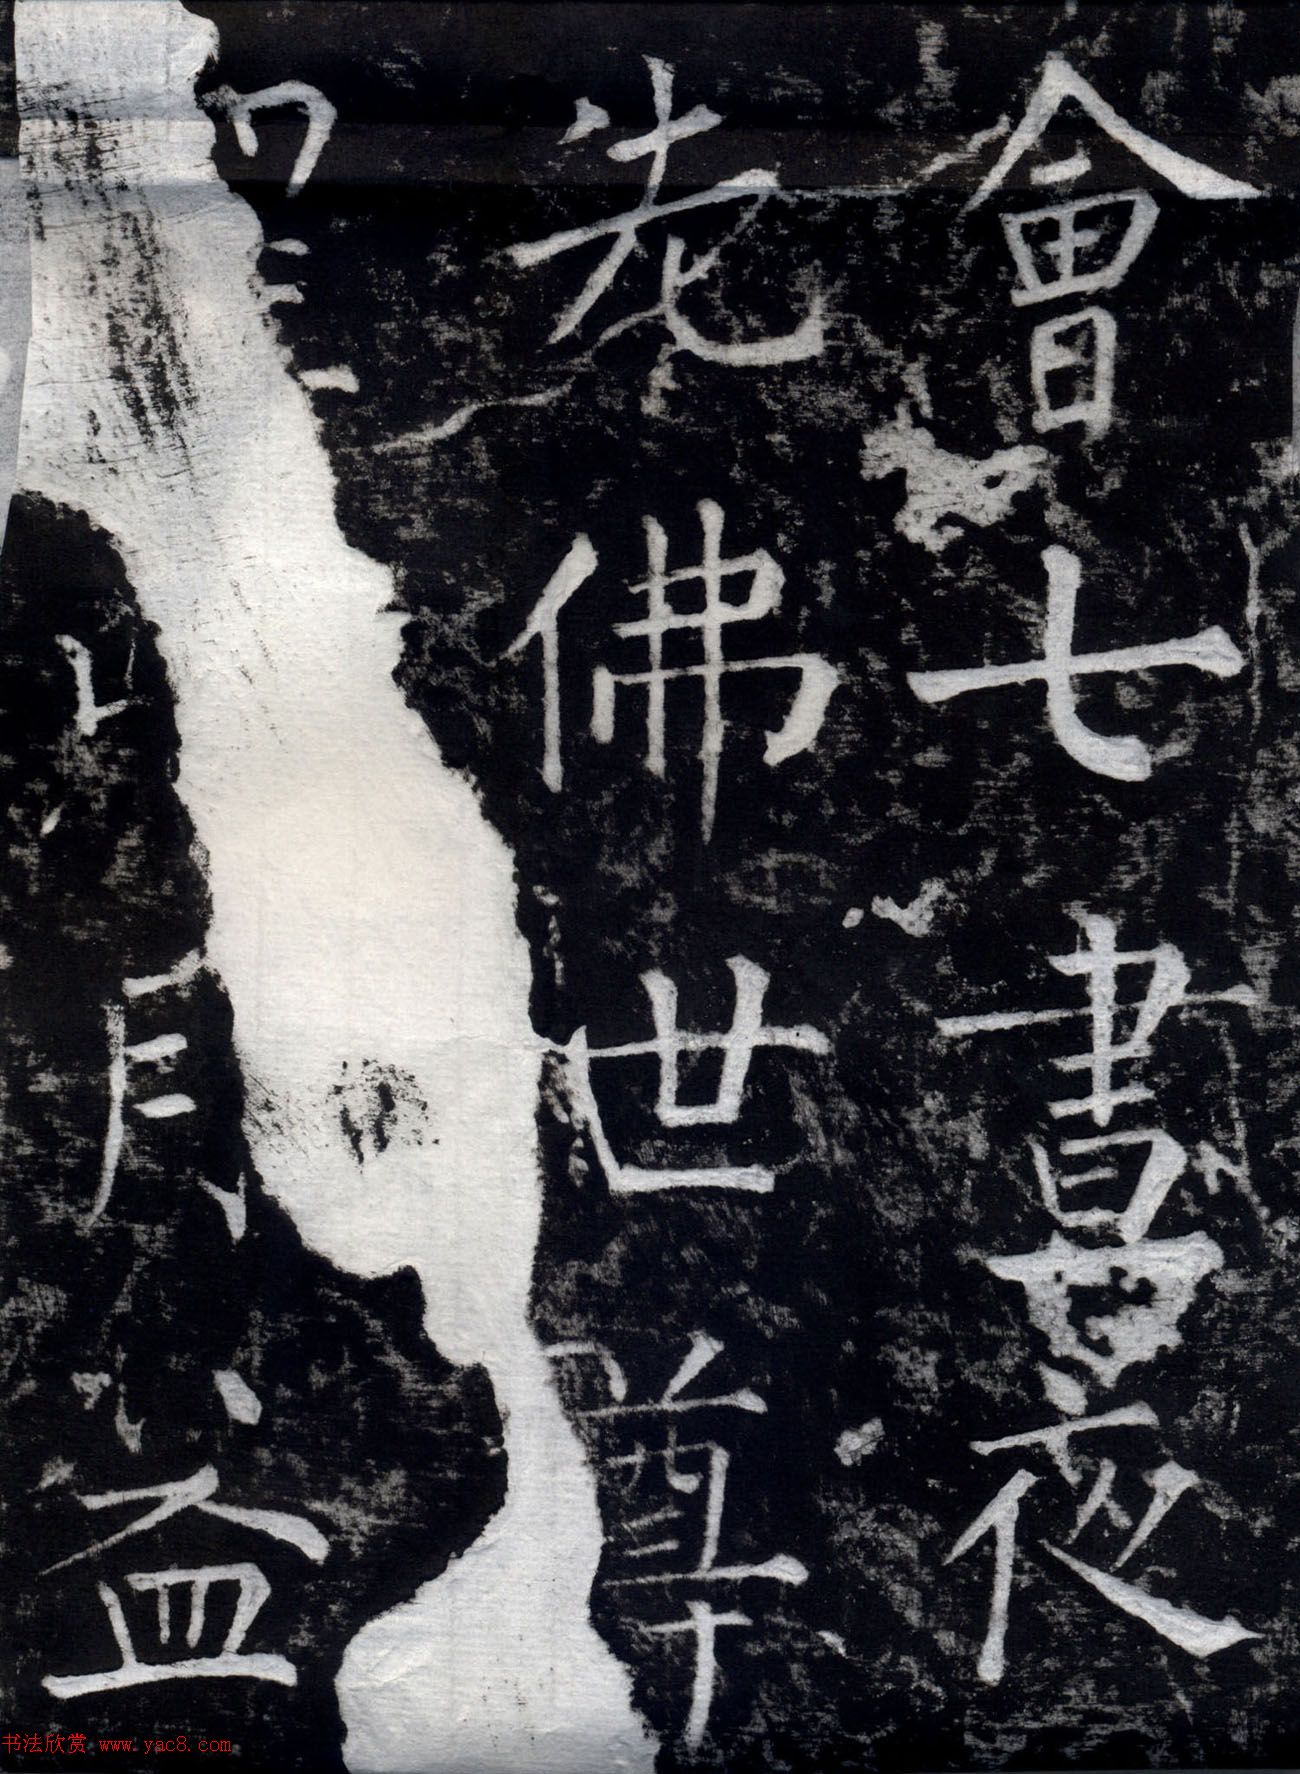 會七晝夜
先佛世尊
益
书法欣赏 www.yac8.com